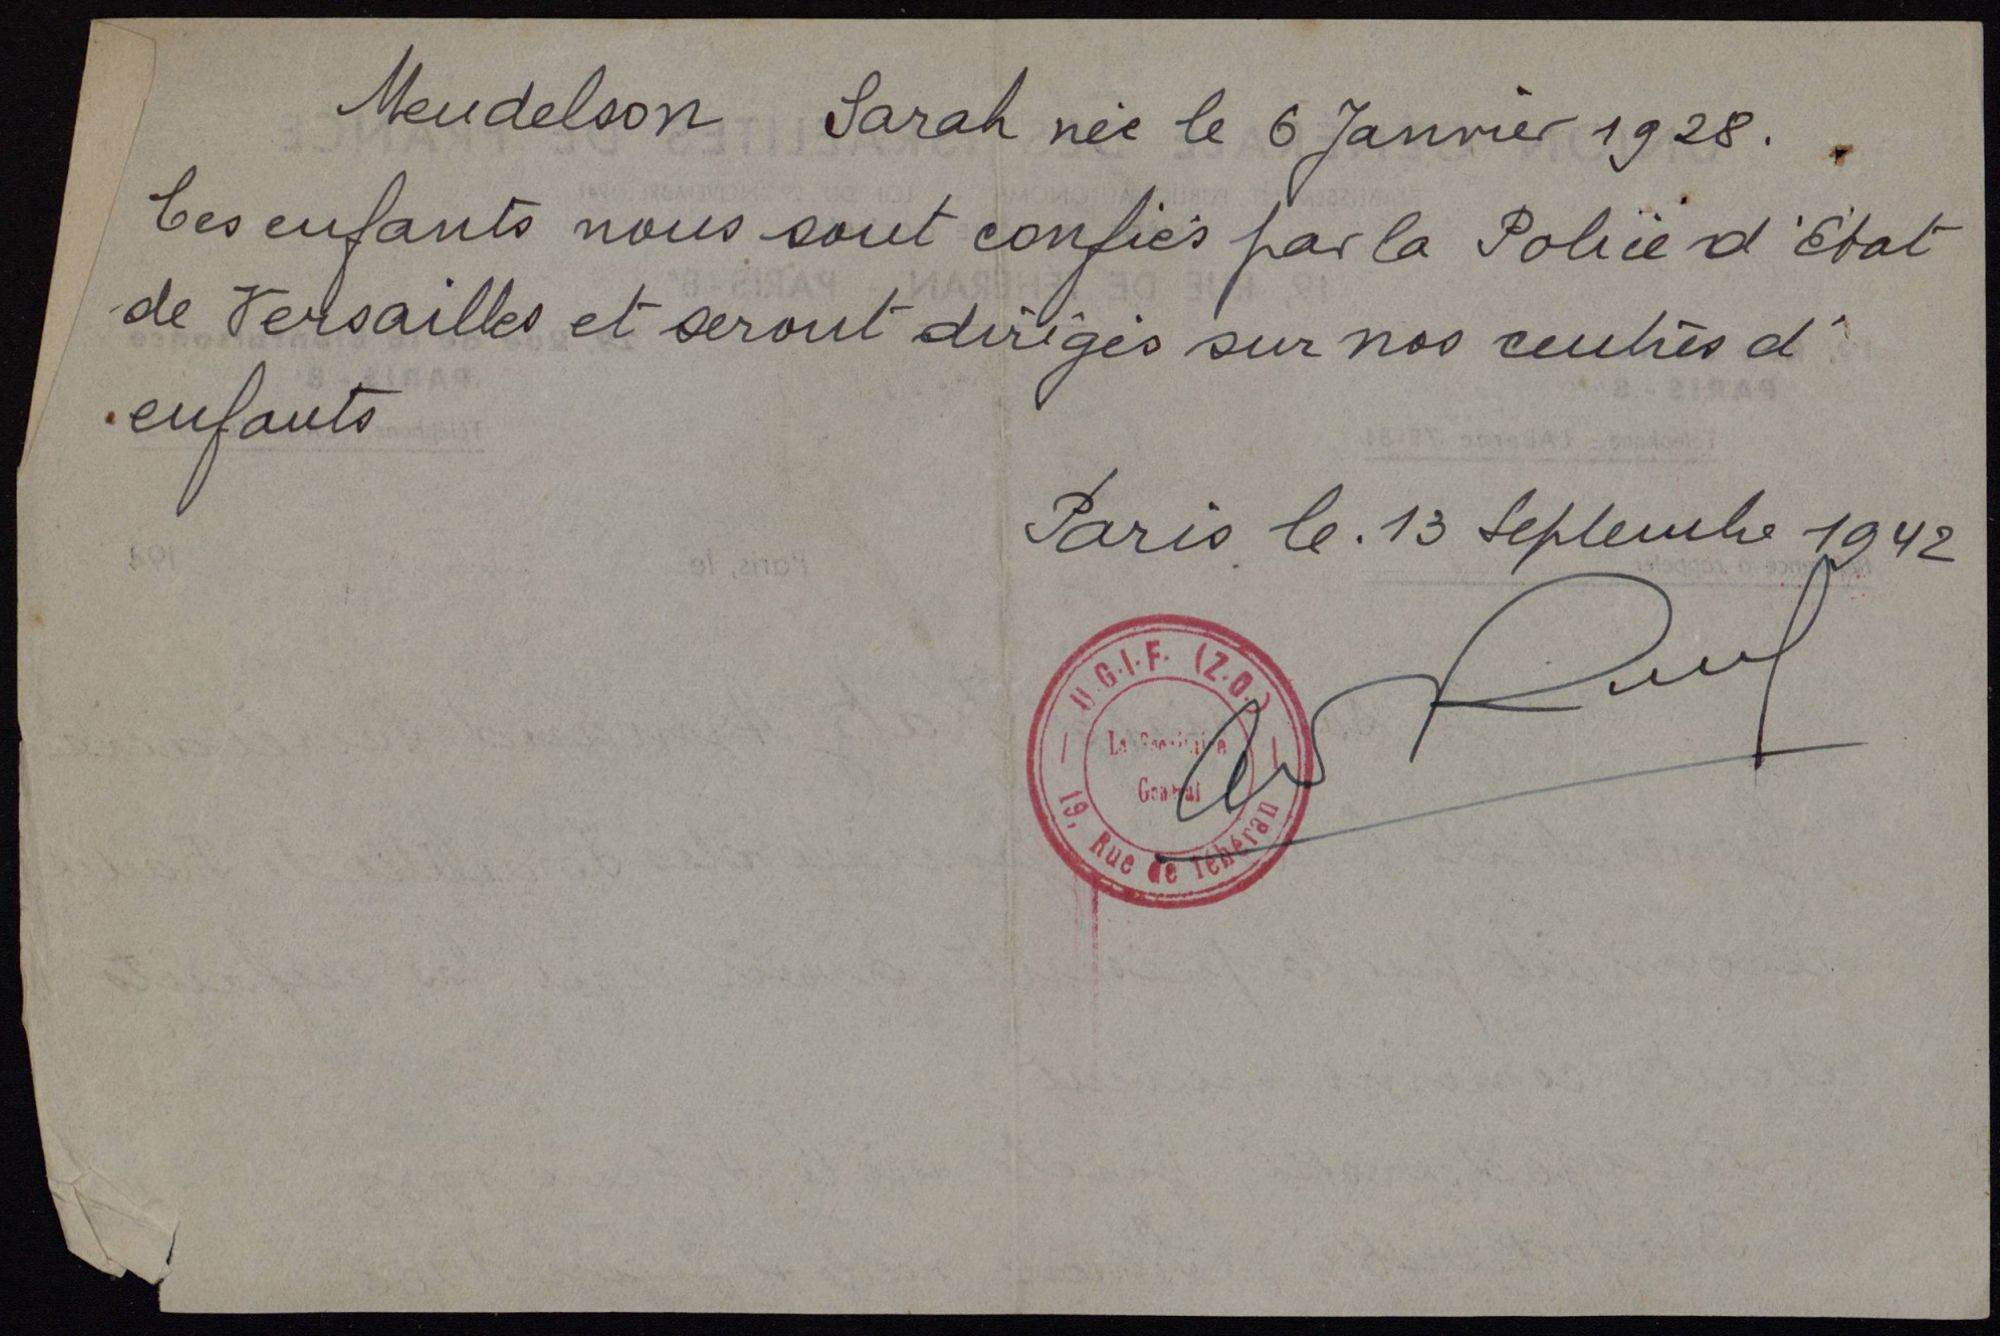 Mendelson Sarah née le 6 Janvier 1928.
Ces enfants nous sont confiés par la Police d'Etat
de Versailles et seront dirigés sur nos centres d'
enfants
Paris le. 13 Septembre 1942
U.G.I.F. (Z.O.)
Le Secrétaire
Général
19, Rue de Téhéran